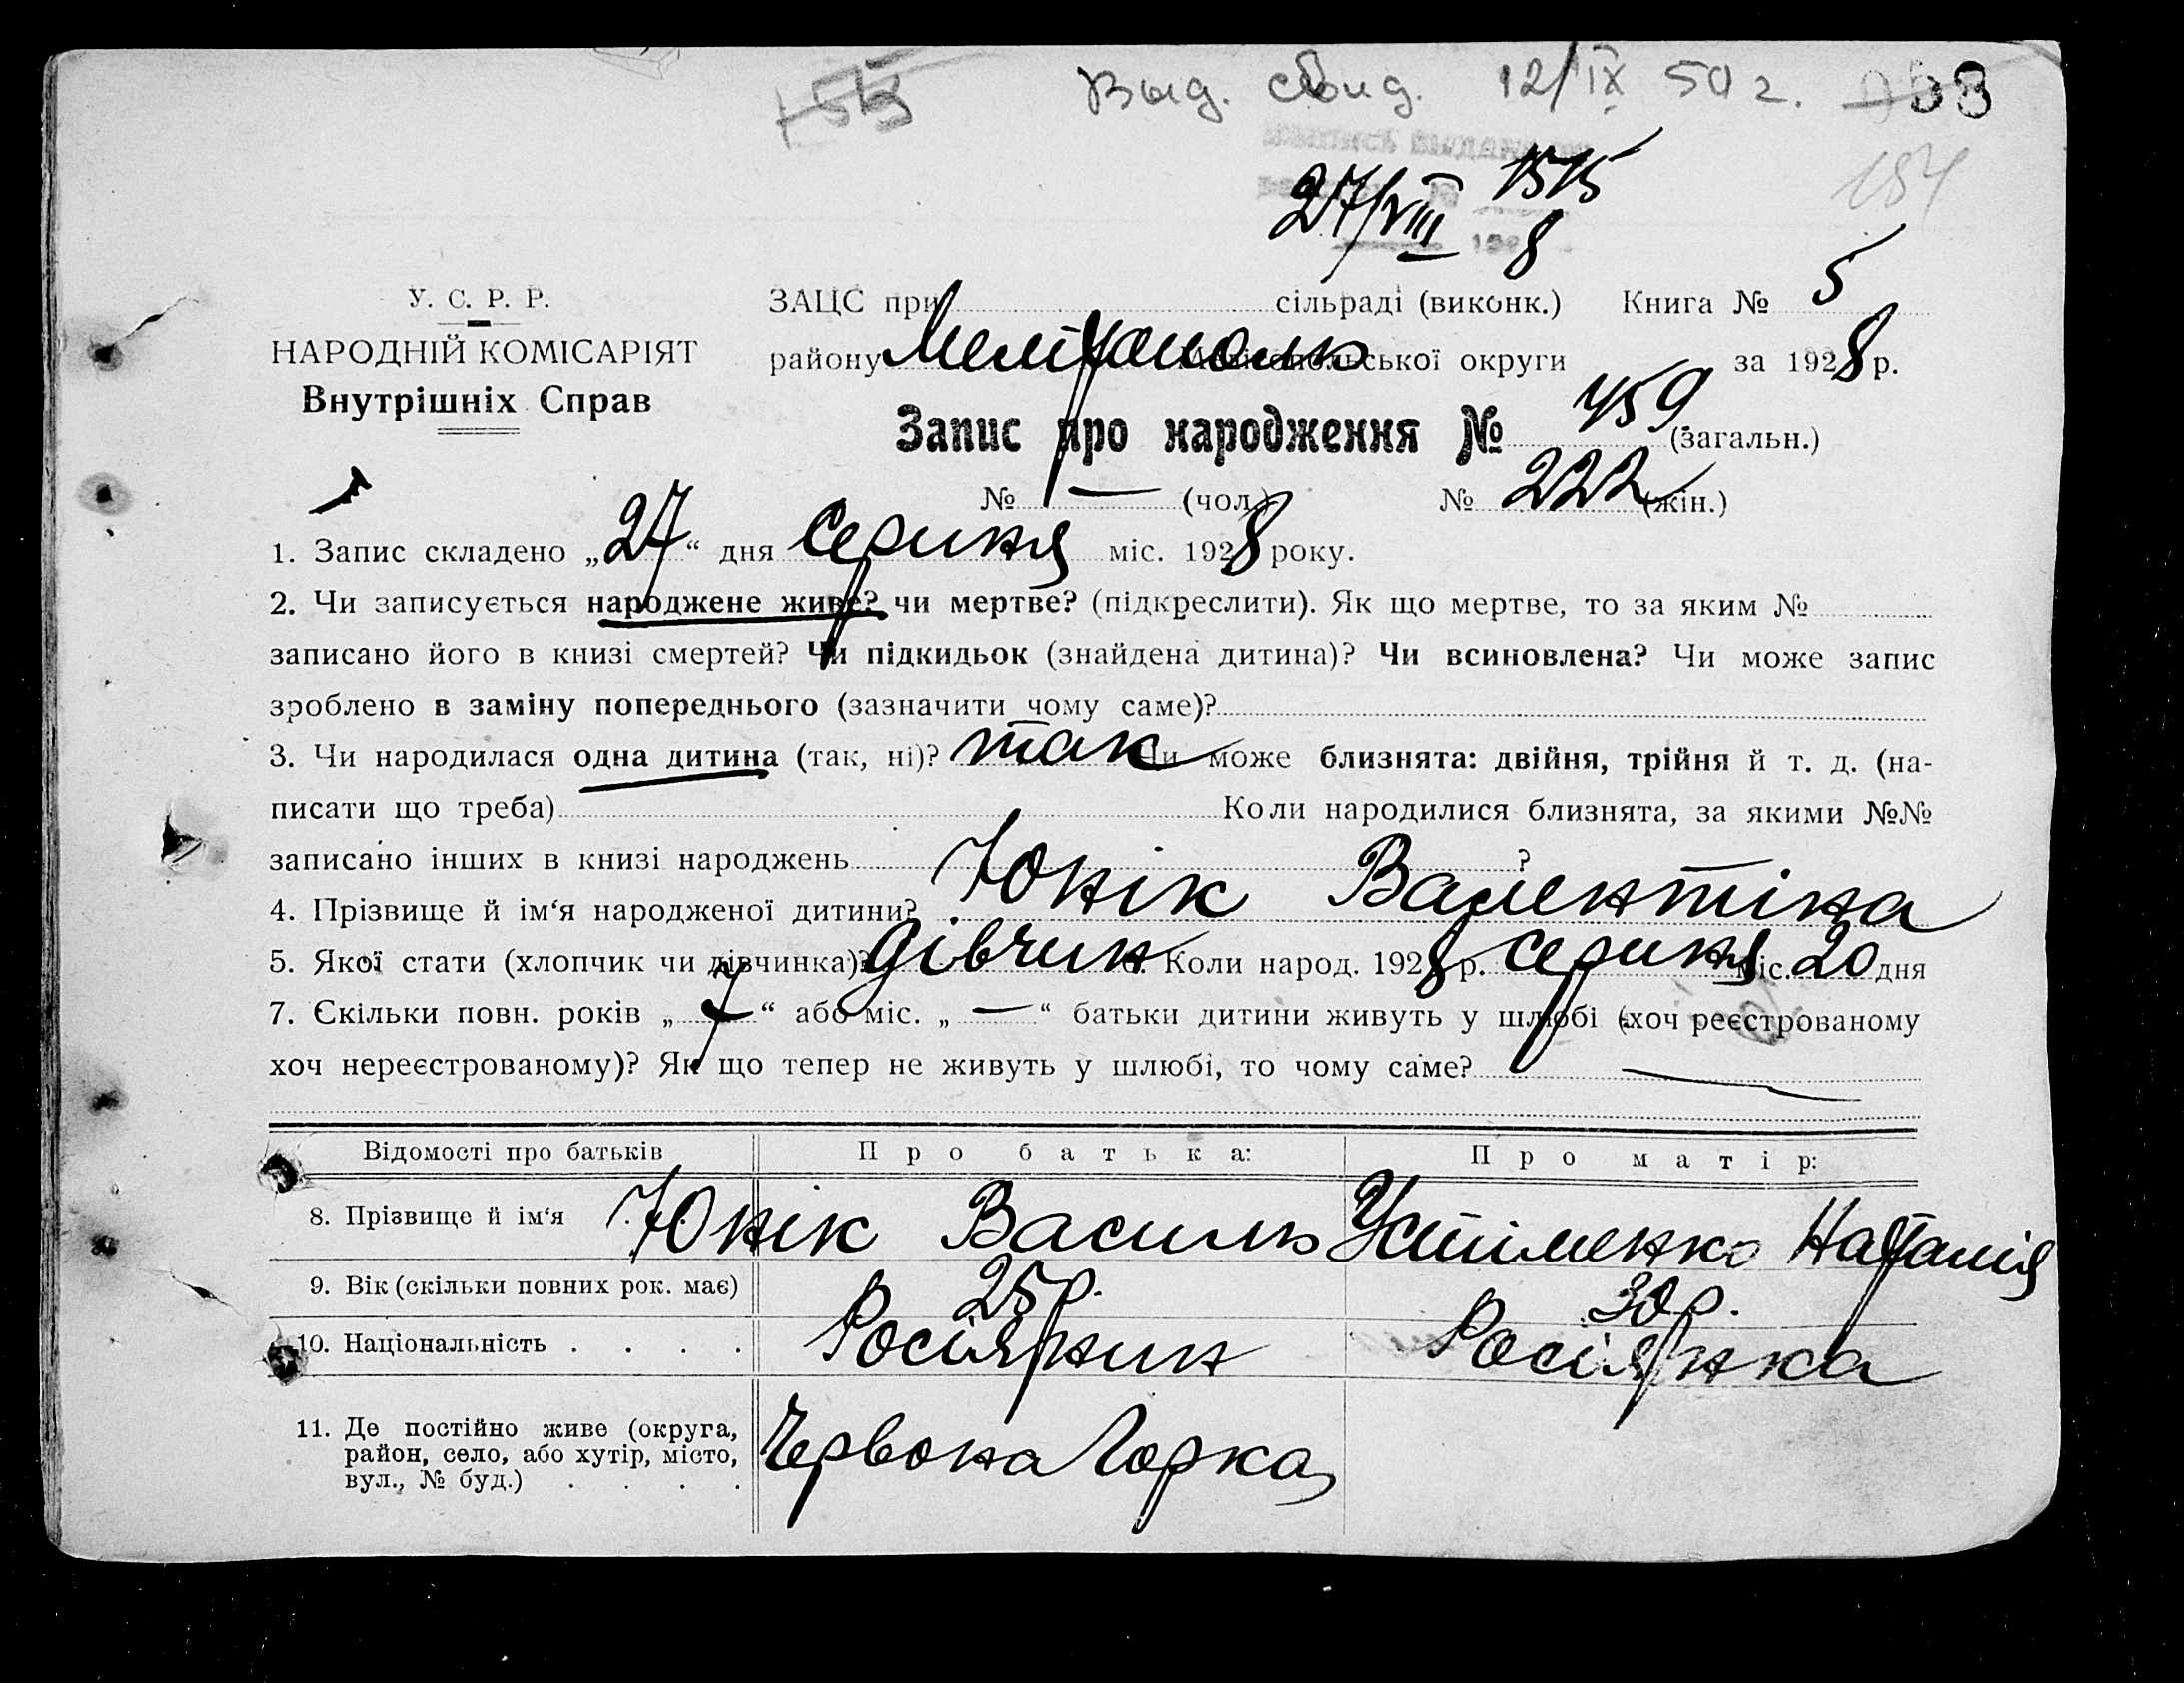 Выд. свид. 12/IX 50 г.
154
27/VIII 1515
8
У. С. Р. Р.
НАРОДНІЙ КОМІСАРІЯТ
Внутрішніх Справ
ЗАЦС при сільраді (виконк.) Книга № 5
району Мелітополь Мелітопольської округи за 1928 р.
Запис про народження № 459 (загальн.)
№ — (чол.) № 222 (жін.)
1. Запис складено „27“ дня Серпня міс. 1928 року.
2. Чи записується народжене живе? чи мертве? (підкреслити). Як що мертве, то за яким №
записано його в книзі смертей? Чи підкидьок (знайдена дитина)? Чи всиновлена? Чи може запис
зроблено в заміну попереднього (зазначити чому саме)?
3. Чи народилася одна дитина (так, ні)? так Чи може близнята: двійня, трійня й т. д. (на-
писати що треба) Коли народилися близнята, за якими №№
записано інших в книзі народжень ?
4. Прізвище й ім‘я народженої дитини? Юнік Валентіна
5. Якої стати (хлопчик чи дівчинка)? дівчин 6. Коли народ. 1928 р. серпня міс. 20 дня
7. Скільки повн. років „7“ або міс. „—“ батьки дитини живуть у шлюбі (хоч реєстрованому
хоч нереєстрованому)? Як що тепер не живуть у шлюбі, то чому саме? —
Відомості про батьків Про батька: Про матір:
8. Прізвище й ім‘я Юнік Василь Устіменко Наталія
9. Вік (скільки повних рок. має) 25 р. 30 р.
10. Національність . . . . Росіянин Росіянка
11. Де постійно живе (округа,
район, село, або хутір, місто,
вул., № буд.) . . . .
Червона Горка